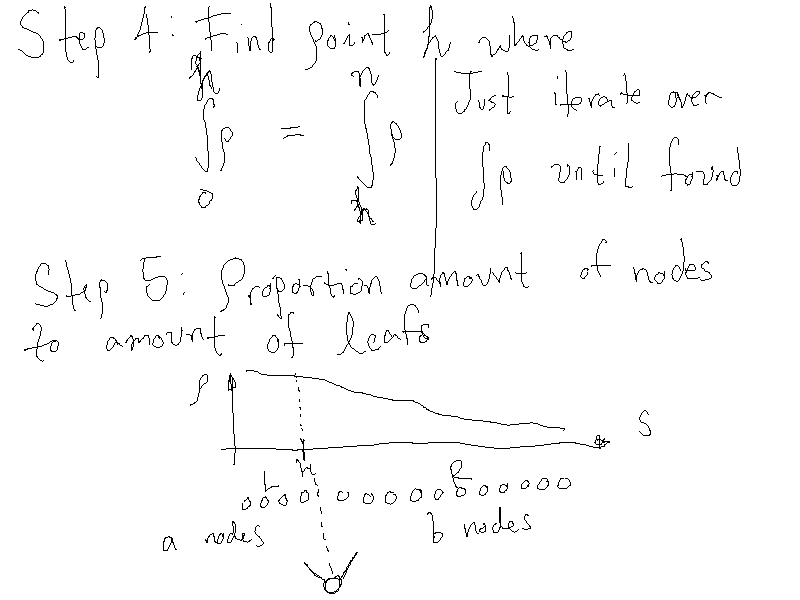 Step 4: Find point h where
h n
∫ρ = ∫ρ
0 h
Just iterate over
∫ρ until found
Step 5: Proportion amount of nodes
to amount of leafs
ρ
S
h
L R
a nodes b nodes